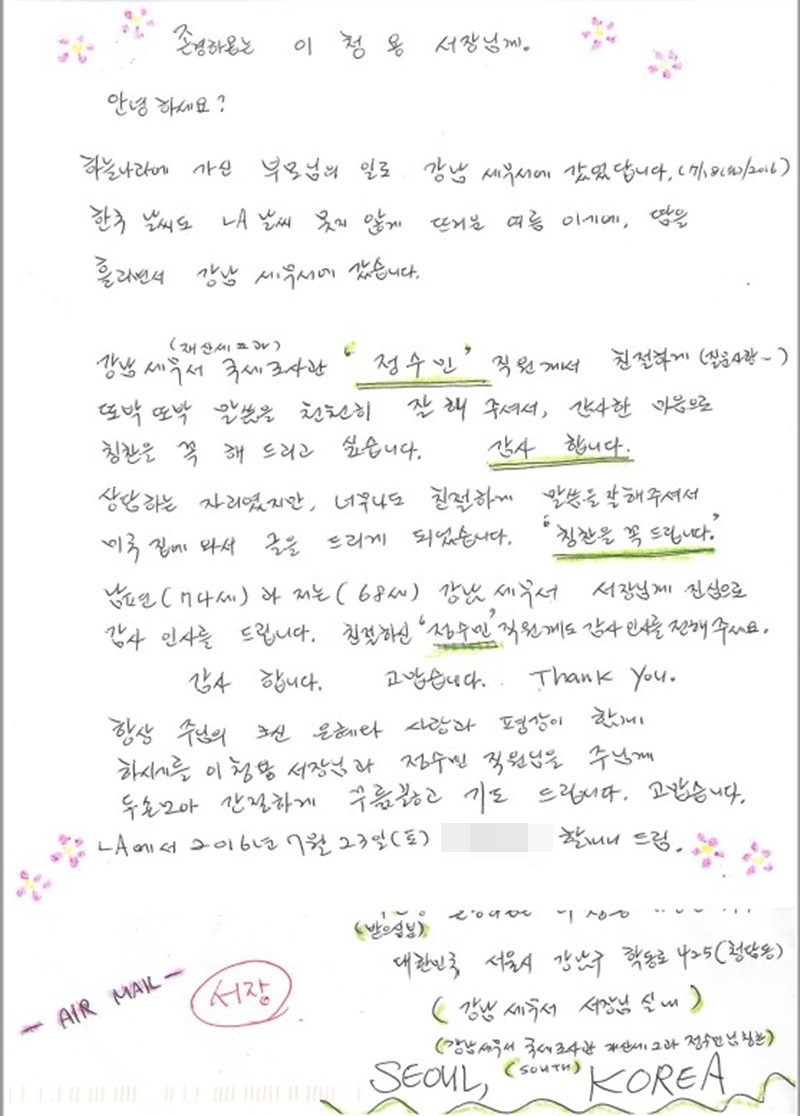 존경하옵는 이 청 용 서장님께.
안녕 하세요?
하늘나라에 가신 부모님의 일로 강남 세무서에 갔었답니다. (7/18(월)/2016)
한국 날씨도 LA 날씨 못지 않게 뜨거운 여름 이기에, 땀을
흘리면서 강남 세무서에 갔습니다.
(재산세 2과)
강남 세무서 국세조사관 "정수인" 직원께서 친절하게
또박 또박 말씀을 천천히 잘 해 주셔서, 감사한 마음으로
칭찬을 꼭 해 드리고 싶습니다. 감사 합니다.
상담하는 자리였지만, 너무나도 친절하게 말씀을 잘해주셔서
미국 집에 와서 글을 드리게 되었습니다. "칭찬을 꼭 드립니다."
남편(74세)과 저는(68세) 강남 세무서 서장님께 진심으로
감사 인사를 드립니다. 친절하신 "정수인" 직원께도 감사 인사를 전해 주세요.
감사 합니다. 고맙습니다. Thank You.
항상 주님의 크신 은혜와 사랑과 평강이 함께
하시기를 이 청용 서장님과 정수인 직원님을 주님께
두손모아 간절하게 무릎꿇고 기도 드립니다. 고맙습니다.
LA에서 2016년 7월 23일(토) 할머니 드림.
(받으실분)
대한민국 서울시 강남구 학동로 425(청담동)
(강남 세무서 서장님 실내)
(강남세무서 국세조사관 재산세2과 정수인님 칭찬)
- AIR MAIL -
서장
SEOUL, (SOUTH) KOREA